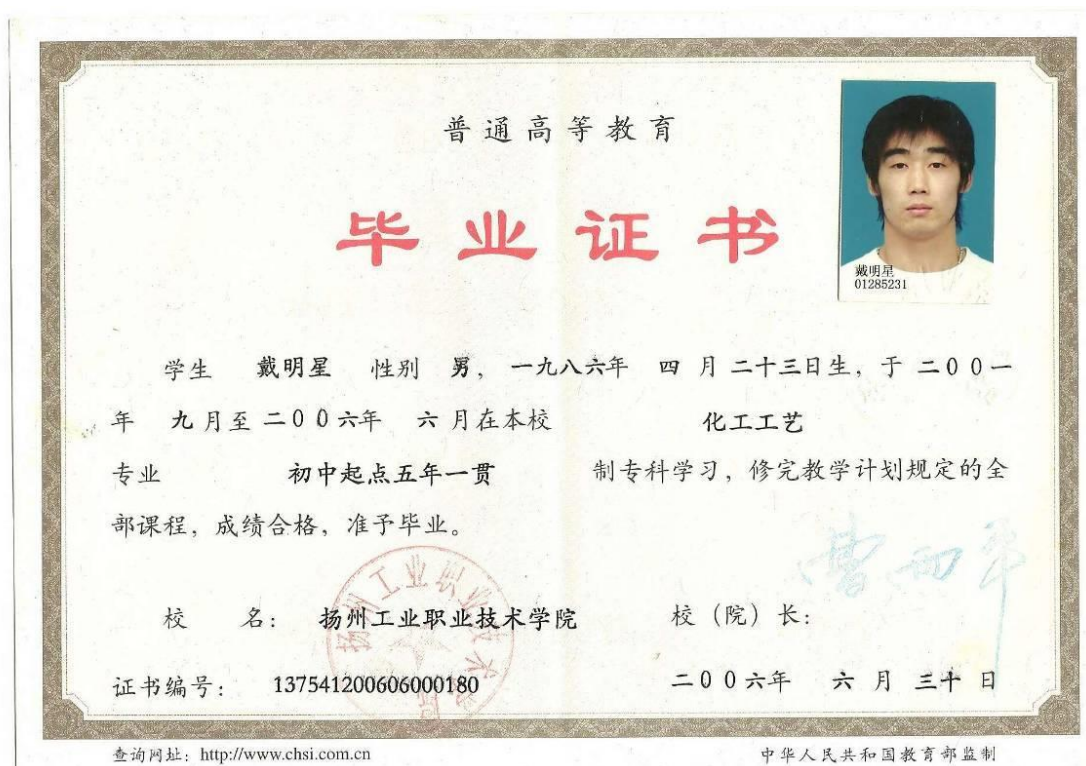 普通高等教育
毕业证书
戴明星
01285231
学生 戴明星 性别 男，一九八六年 四 月 二十三日生，于 二00一
年 九 月至 二00六年 六 月在本校 化工工艺
专业 初中起点五年一贯 制专科学习，修完教学计划规定的全
部课程，成绩合格，准予毕业。
校 名： 扬州工业职业技术学院 校（院）长：
证书编号： 137541200606000180 二00六年 六 月 三十 日
查询网址：http://www.chsi.com.cn 中华人民共和国教育部监制